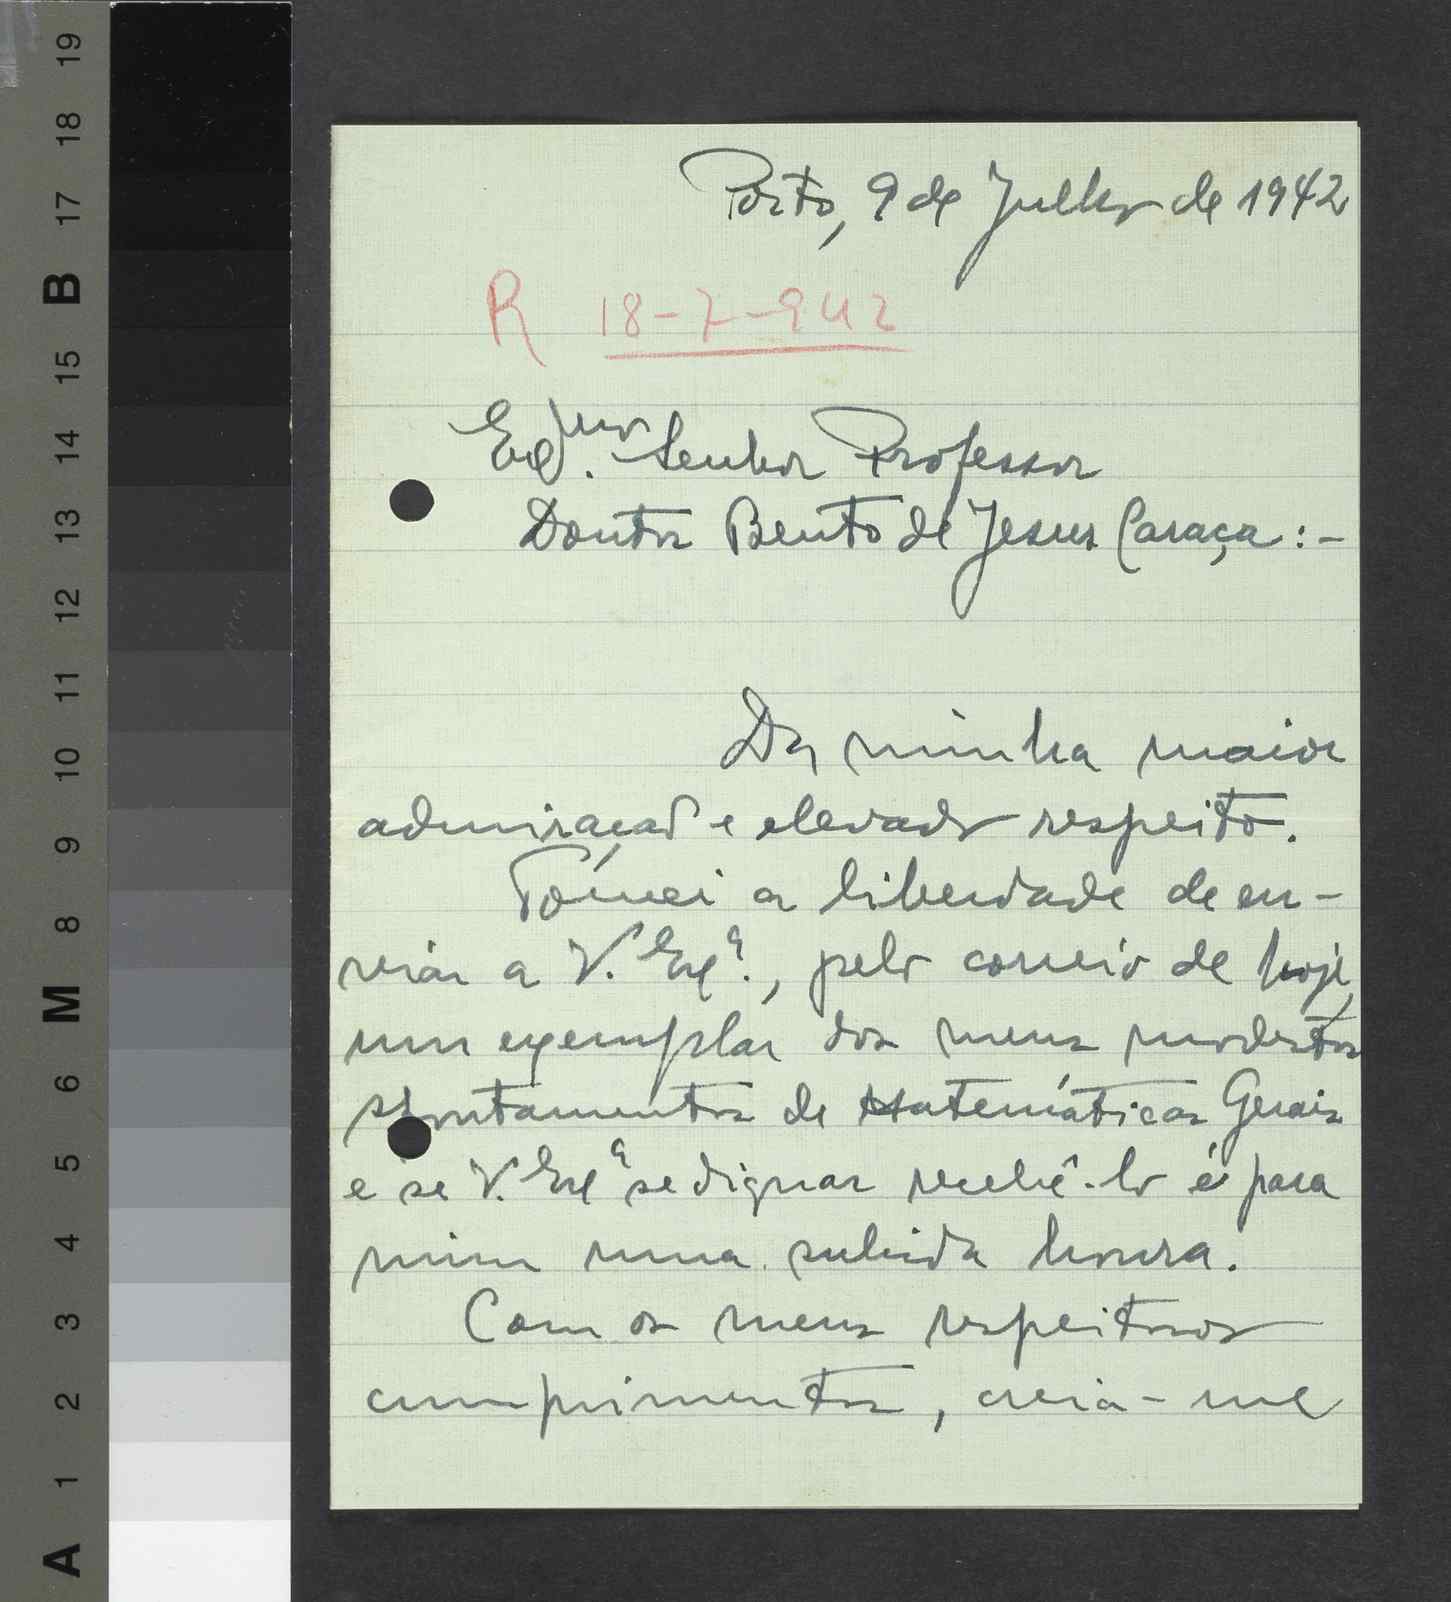 Porto, 9 de Julho de 1942
R 18-7-942
Exmo. Senhor Professor
Doutor Bento de Jesus Caraça:-
Da minha maior
admiração e elevado respeito.
Tómei a liberdade de en-
viar a V. Exª., pelo correio de hoje,
um exemplar dos meus modestos
apontamentos de Matemáticas Gerais
e se V. Exª se dignar recebê-lo é para
mim uma subida honra.
Com os meus respeitosos
cumprimentos, creia-me
A 1 2 3 4 5 6 M 8 9 10 11 12 13 14 15 B 17 18 19